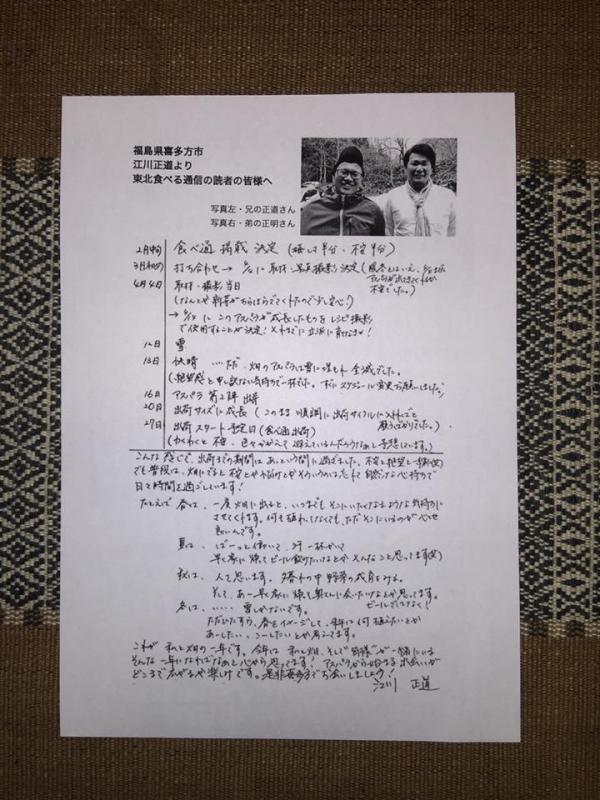 福島県喜多方市
江川正道より
東北食べる通信の読者の皆様へ
写真左・兄の正道さん
写真右・弟の正明さん
2月中旬 食べ通 掲載 決定 (嬉しさ半分・不安半分)
3月初旬 打ち合わせ → 4/4に 取材・写真撮影 決定
4月4日 取材・撮影 当日
(なんと新芽がちらほらでてくれたので少し安心!)
に このアスパラが成長したものを レシピ撮影
で使用することが決定! それまでに立派に育てなきゃ!
12日 雪
13日 快晴 いただ、畑のアスパラは雪に埋もれ 全滅でした。
(絶望感と申し訳ない気持ちで一杯でした。
16日 アスパラ 第2陣 出芽
20日 出荷サイズに成長 (このまま順調に出荷サイクルに入れてと
願うばかりでした。)
27日 出荷 スタート予定日 (食べ通出荷)
(わくわくと不安、色々かかえて迎えているんだろうなぁと予想しています。)
こんな感じで、出荷までの期間は あっという間に過ぎました。不安と絶望と
でも普段は、畑にでると 不安とか
日々時間を過ごしています!
たとえば 春は、一度 畑に出ると、いつまでも そこにいたくなるような気持ちに
させてくれます。何も植わってなくても、ただそこにいるのが心地
良いんです。
夏は、ばーっと働いて、汗一杯かいて
早く家に帰ってビール飲みたいなぁとか そんなこと思ってます(笑)
秋は、人を思います。夕暮れの中 野菜の成育をみる。
そして、あー早く家に帰って奥さんに会いたいなぁとか思ってます。
ビールだけでなく!
冬は、‥‥ 雪しかないです。
ただひたすら、春をイメージして、来年は何植えたいとか
あーしたい、こーしたいとか考えてます。
これが 私と畑の一年です。今年は 私と畑、そして皆様が一緒にいる
そんな一年になればなぁと心から思ってます! アスパラから始まる出会いが
どこまで広がるか楽しみです。是非喜多方でお会いしましょう!
江川 正道